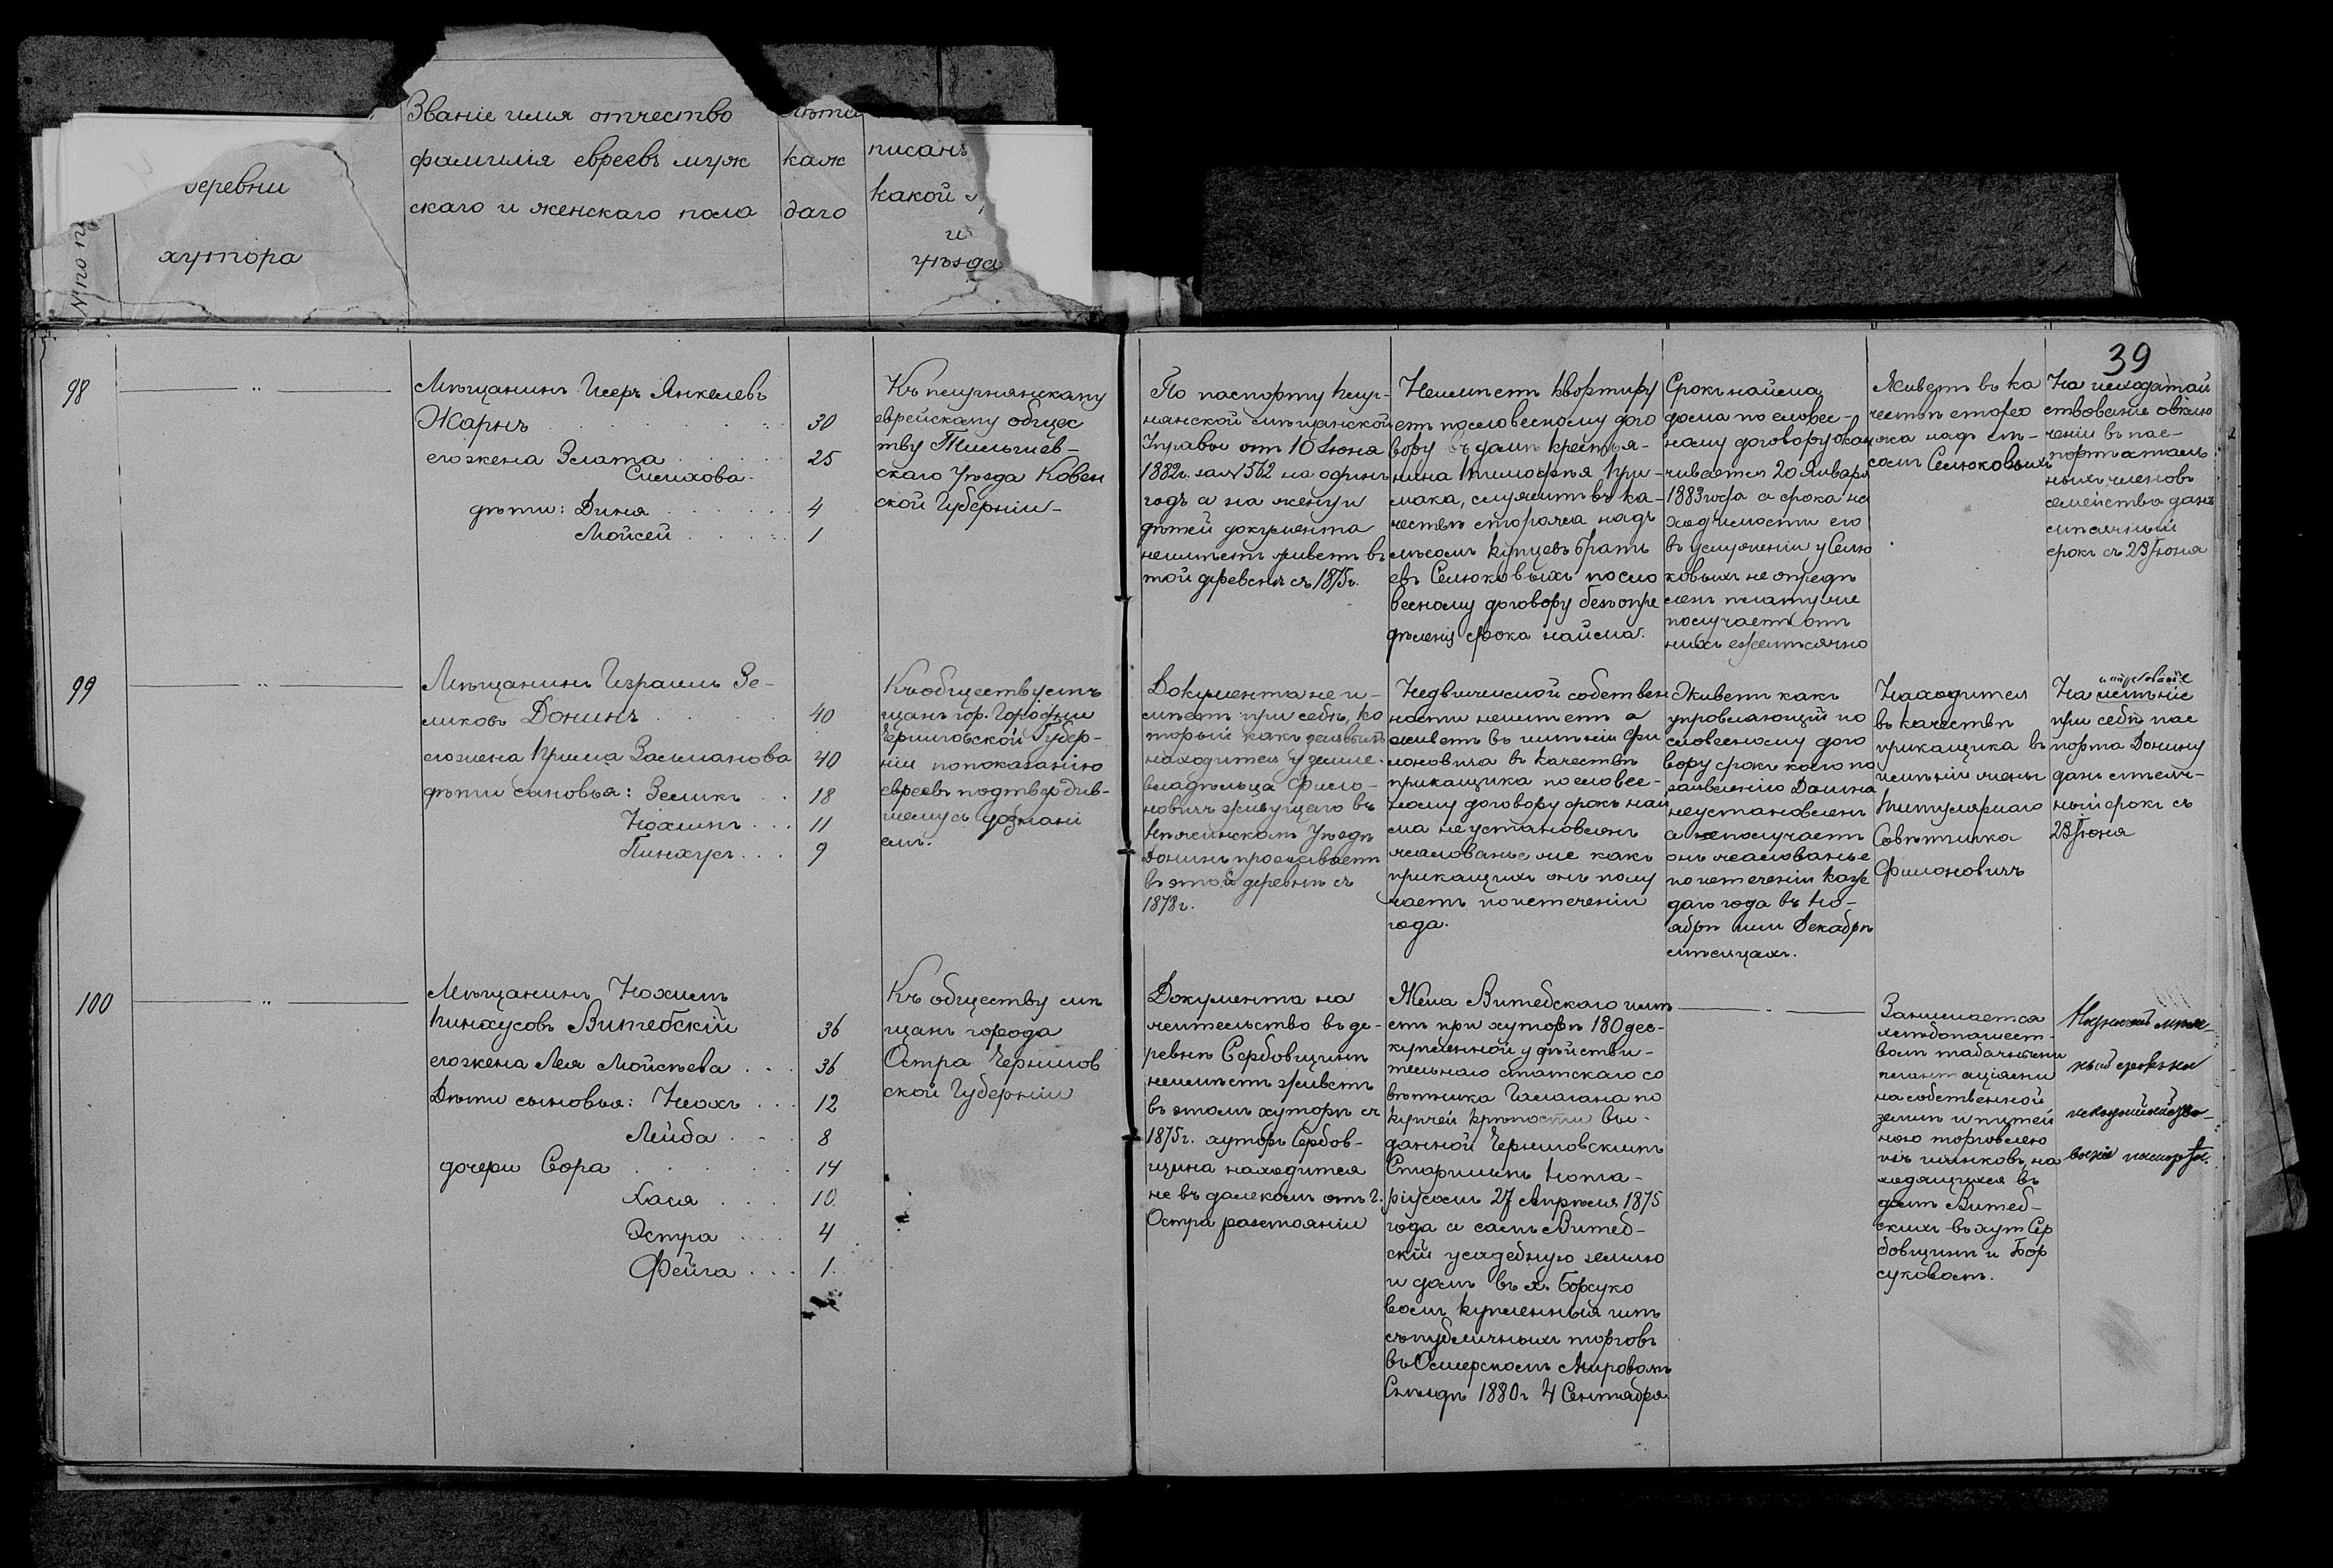 Званіе имя отчество
фамилія евреевъ муж
скаго и женскаго пола
лѣта
каж
даго
писанъ
какой
и
уѣзда
деревни
хутора
№ по п
39
98
Мѣщанинъ Исеръ Янкелевъ
Жаръ 30
его жена Злата 25
Симихова
дѣти: Дина 4
Мойсей 1
Къ
еврейскому общес
тву Тельшев-
скаго Уѣзда Ковен
ской Губерніи
По паспорту
мѣщанской
Управы от 10 Іюня
1882г. за № 562 на одинъ
годъ а на жену и
дѣтей документа
неимѣетъ живетъ въ
той деревни съ 1875г.
Неимѣетъ квартиру
етъ пословесному дого
вору въ домѣ крестья-
нина Тимофѣя При-
мака, служитъ въ ка-
чествѣ сторожа надъ
лѣсомъ купцевъ брать
евъ Селюковыхъ посло
весному договору безъ опре
дѣленія срока найма.
Срокъ найма
дома по словес-
ному договору окан
чивается 20 Января
1883 года а срока на
ходимости его
въ услуженіи у Селю
ковыхъ не опредѣ
ленъ плату же
получаетъ отъ
нихъ ежемѣсячно
Живетъ въ ка
чествѣ сторо
жа надъ лѣ-
сомъ Селюковыхъ
На исходатай
ствованіе о вклю
ченіи въ пас-
портъ осталь
ныхъ членовъ
семейства данъ
мѣсячный
срокъ съ 23 Іюня
99
Мѣщанинъ Израиль Зе-
ликовъ Донинъ 40
его жена Фрума Залманова 40
дѣти сыновья: Зеликъ 18
Нохимъ 11
Пинхусъ 9
Къ обществу мѣ
щанъ гор. Городни
Черниговской Губер-
ніи по показанію
евреевъ подтвердив-
шемуся дознані
емъ.
Документа не и-
мѣетъ при себѣ, ко
торый какъ заявилъ
находится у земле-
владѣльца Фило-
новича живущаго въ
Нѣжинскомъ Уѣздѣ
Донинъ проживаетъ
въ этой деревнѣ съ
1878г.
Недвижимой собствен
ности неимѣетъ а
живетъ въ имѣніи Фи
лоновича въ качествѣ
прикащика по словес-
ному договору срокъ най
ма не установленъ
жалованье же какъ
прикащикъ онъ полу
чаетъ по истеченіи
года.
Живетъ какъ
управляющій по
словесному дого
вору срокъ коего по
заявленію Донина
не установленъ
а получаетъ
онъ жалованье
по истеченіи каж
даго года въ Но-
ябрѣ или Декабрѣ
мѣсяцахъ.
Находится
въ качествѣ
прикащика въ
имѣніи жены
Титулярнаго
Совѣтника
Филоновичъ
На имѣніе
при себѣ пас
порта Донину
данъ мѣсяч-
ный срокъ съ
23 Іюня
100
Мѣщанинъ Нохимъ
Пинхусовъ Витебскій 36
его жена Лея Мойсѣева 36
Дѣти сыновья: Ноахъ 12
Лейба 8
дочери Сора 14
Хася 10
Эстра 4
Фейга 1
Къ обществу мѣ
щанъ города
Остра Чернигов
ской Губерніи
Документа на
жительство въ де-
ревнѣ Сербовщинѣ
неимѣетъ живетъ
въ этомъ хуторѣ съ
1875г. хуторъ Сербов-
щина находится
не въ далекомъ отъ г.
Остра разстояніи
Жена Витебскаго имѣ
етъ при хуторѣ 180 дес-
купленной у дѣйстви-
тельнаго статскаго со
вѣтника Галагана по
купчей крѣпости вы-
данной Черниговскимъ
Старшимъ Нота-
ріусомъ 27 Апрѣля 1875
года а самъ Витеб-
скій усадебную землю
и домъ въ х. Борсуко
вомъ купленныя имъ
съ публичныхъ торговъ
въ Остерскомъ Мировомъ
Съѣздѣ 1880г 4 Сентября
Занимается
хлѣбопашест-
вомъ табачными
плантаціями
на собственной
землѣ и питей
ною торговлею
изъ шинковъ, на
ходящихся въ
домѣ Витеб-
скихъ въ хут Сер
бовщинѣ и Бор
суковомъ.
мѣсяч-
ный срокъ на